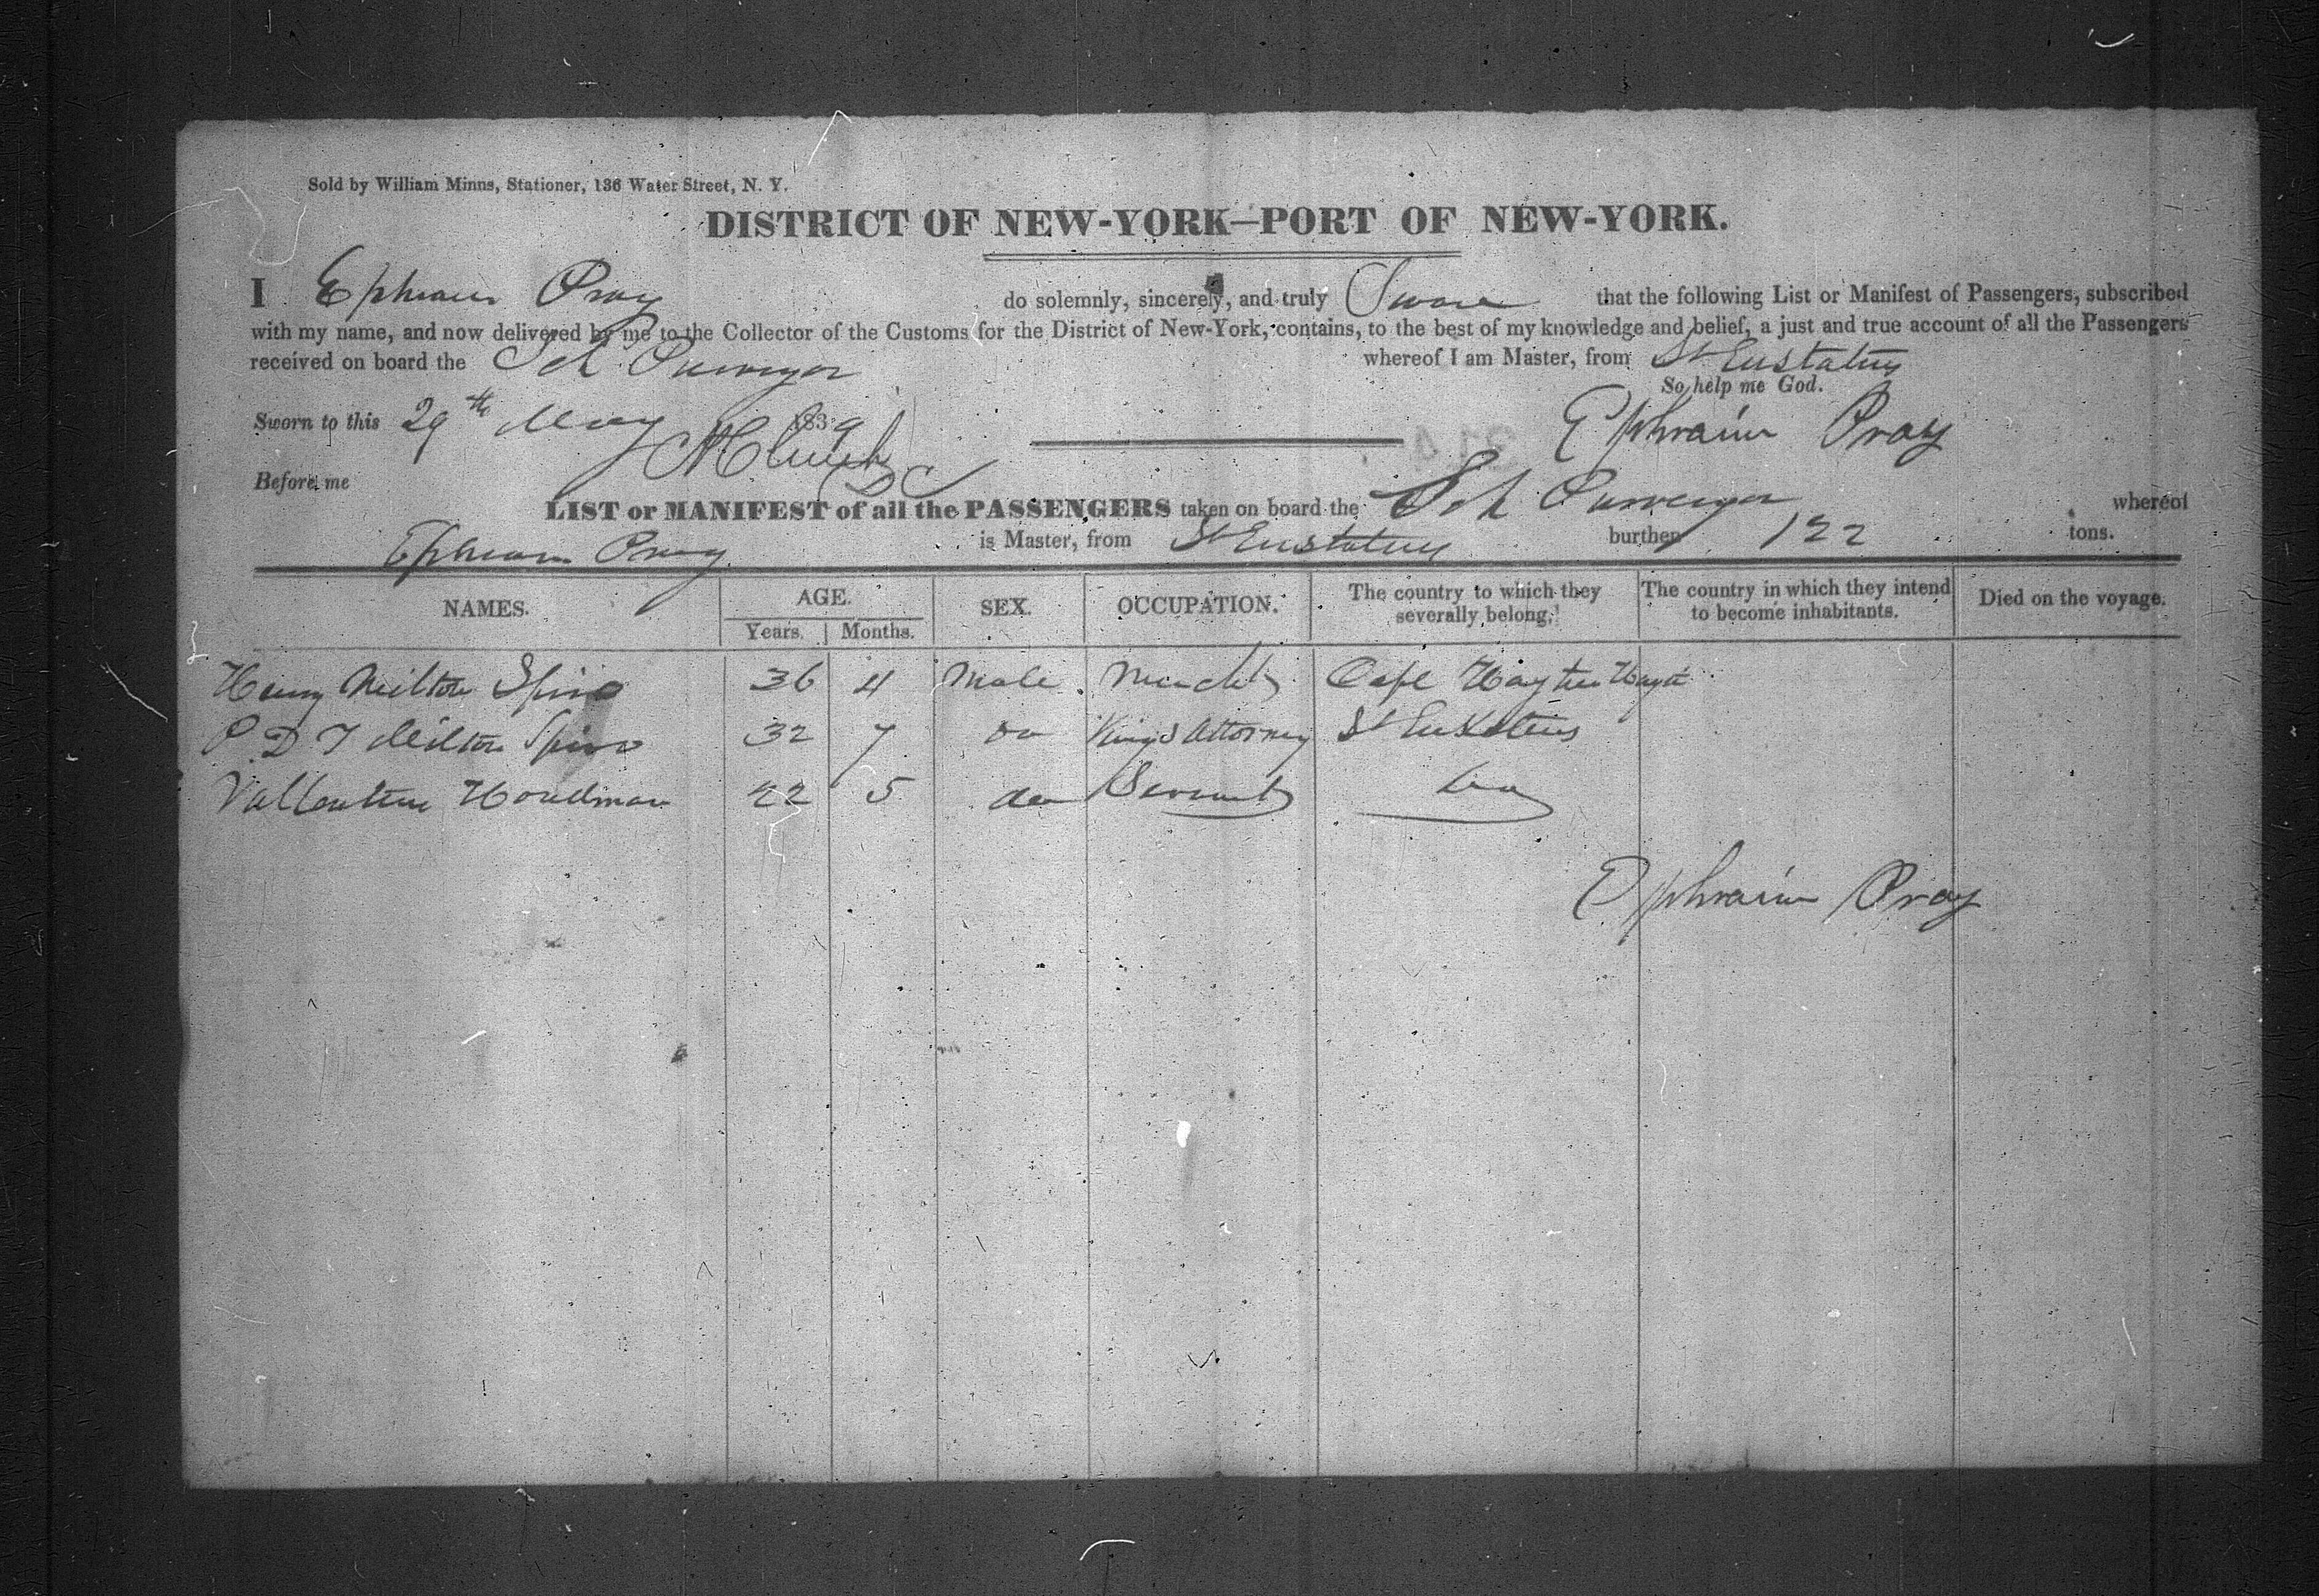 Sold by William Minns, Stationer, 136 Water Street, N. Y.
DISTRICT OF NEW-YORK—PORT OF NEW-YORK.
I Ephraim Pray do solemnly, sincerely, and truly Swore that the following List or Manifest of Passengers, subscribed
with my name, and now delivered by me to the Collector of the Customs for the District of New-York, contains, to the best of my knowledge and belief, a just and true account of all the Passengers
received on board the Sch Purveyor whereof I am Master, from St Eustatius
So help me God.
Sworn to this 29th May 1839 Ephraim Pray
Before me
LIST or MANIFEST of all the PASSENGERS taken on board the Sch Purveyor whereof
Ephraim Pray is Master, from St Eustatius burthen 122 tons.
NAMES. AGE. SEX. OCCUPATION. The country to which they severally belong. The country in which they intend to become inhabitants. Died on the voyage.
Years. Months.
Henry Milton Spiro 36 4 Male Mercht Cape Haytien Hayti
P D T Milton Spiro 32 7 do Kings Attorney St Eustatius
Vallentine Woodman 22 5 do Servant do
Ephraim Pray